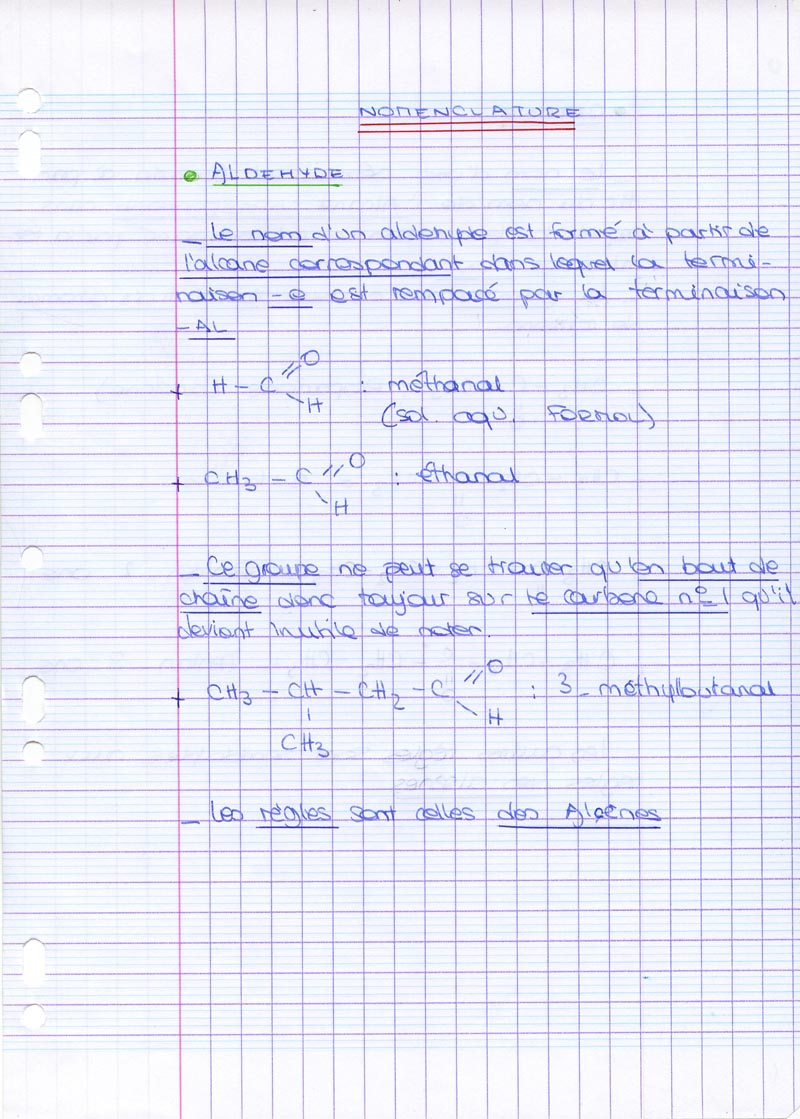 NOMENCLATURE
• ALDEHYDE
_ Le nom d'un aldehyde est formé à partir de
l'alcane correspondant dans lequel la termi-
naison -e est rempacé par la terminaison
-AL
+ H - C =O -H : méthanal
(sol. aqu. FORMOL)
+ CH3 - C =O -H : éthanal
_ Ce groupe ne peut se trouver qu'en bout de
chaîne donc toujour sur le carbone n°1 qu'il
deviant inutile de noter.
+ CH3 - CH - CH2 - C =O -H : 3-méthylbutanal
CH3
_ Les règles sont celles des Alcènes